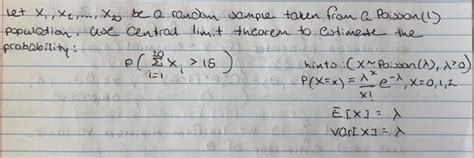 Let X₁, X₂, ..., X₂₀ be a random sample taken from a Poisson(1)
population. Use central limit theorem to estimate the
probability:
P( 20 Σ i=1 Xᵢ > 15 ) hints: (X~Poisson(λ), λ>0)
P(X=x) = λˣ/x! e^-λ, x=0,1,2
E[X] = λ
Var[X] = λ